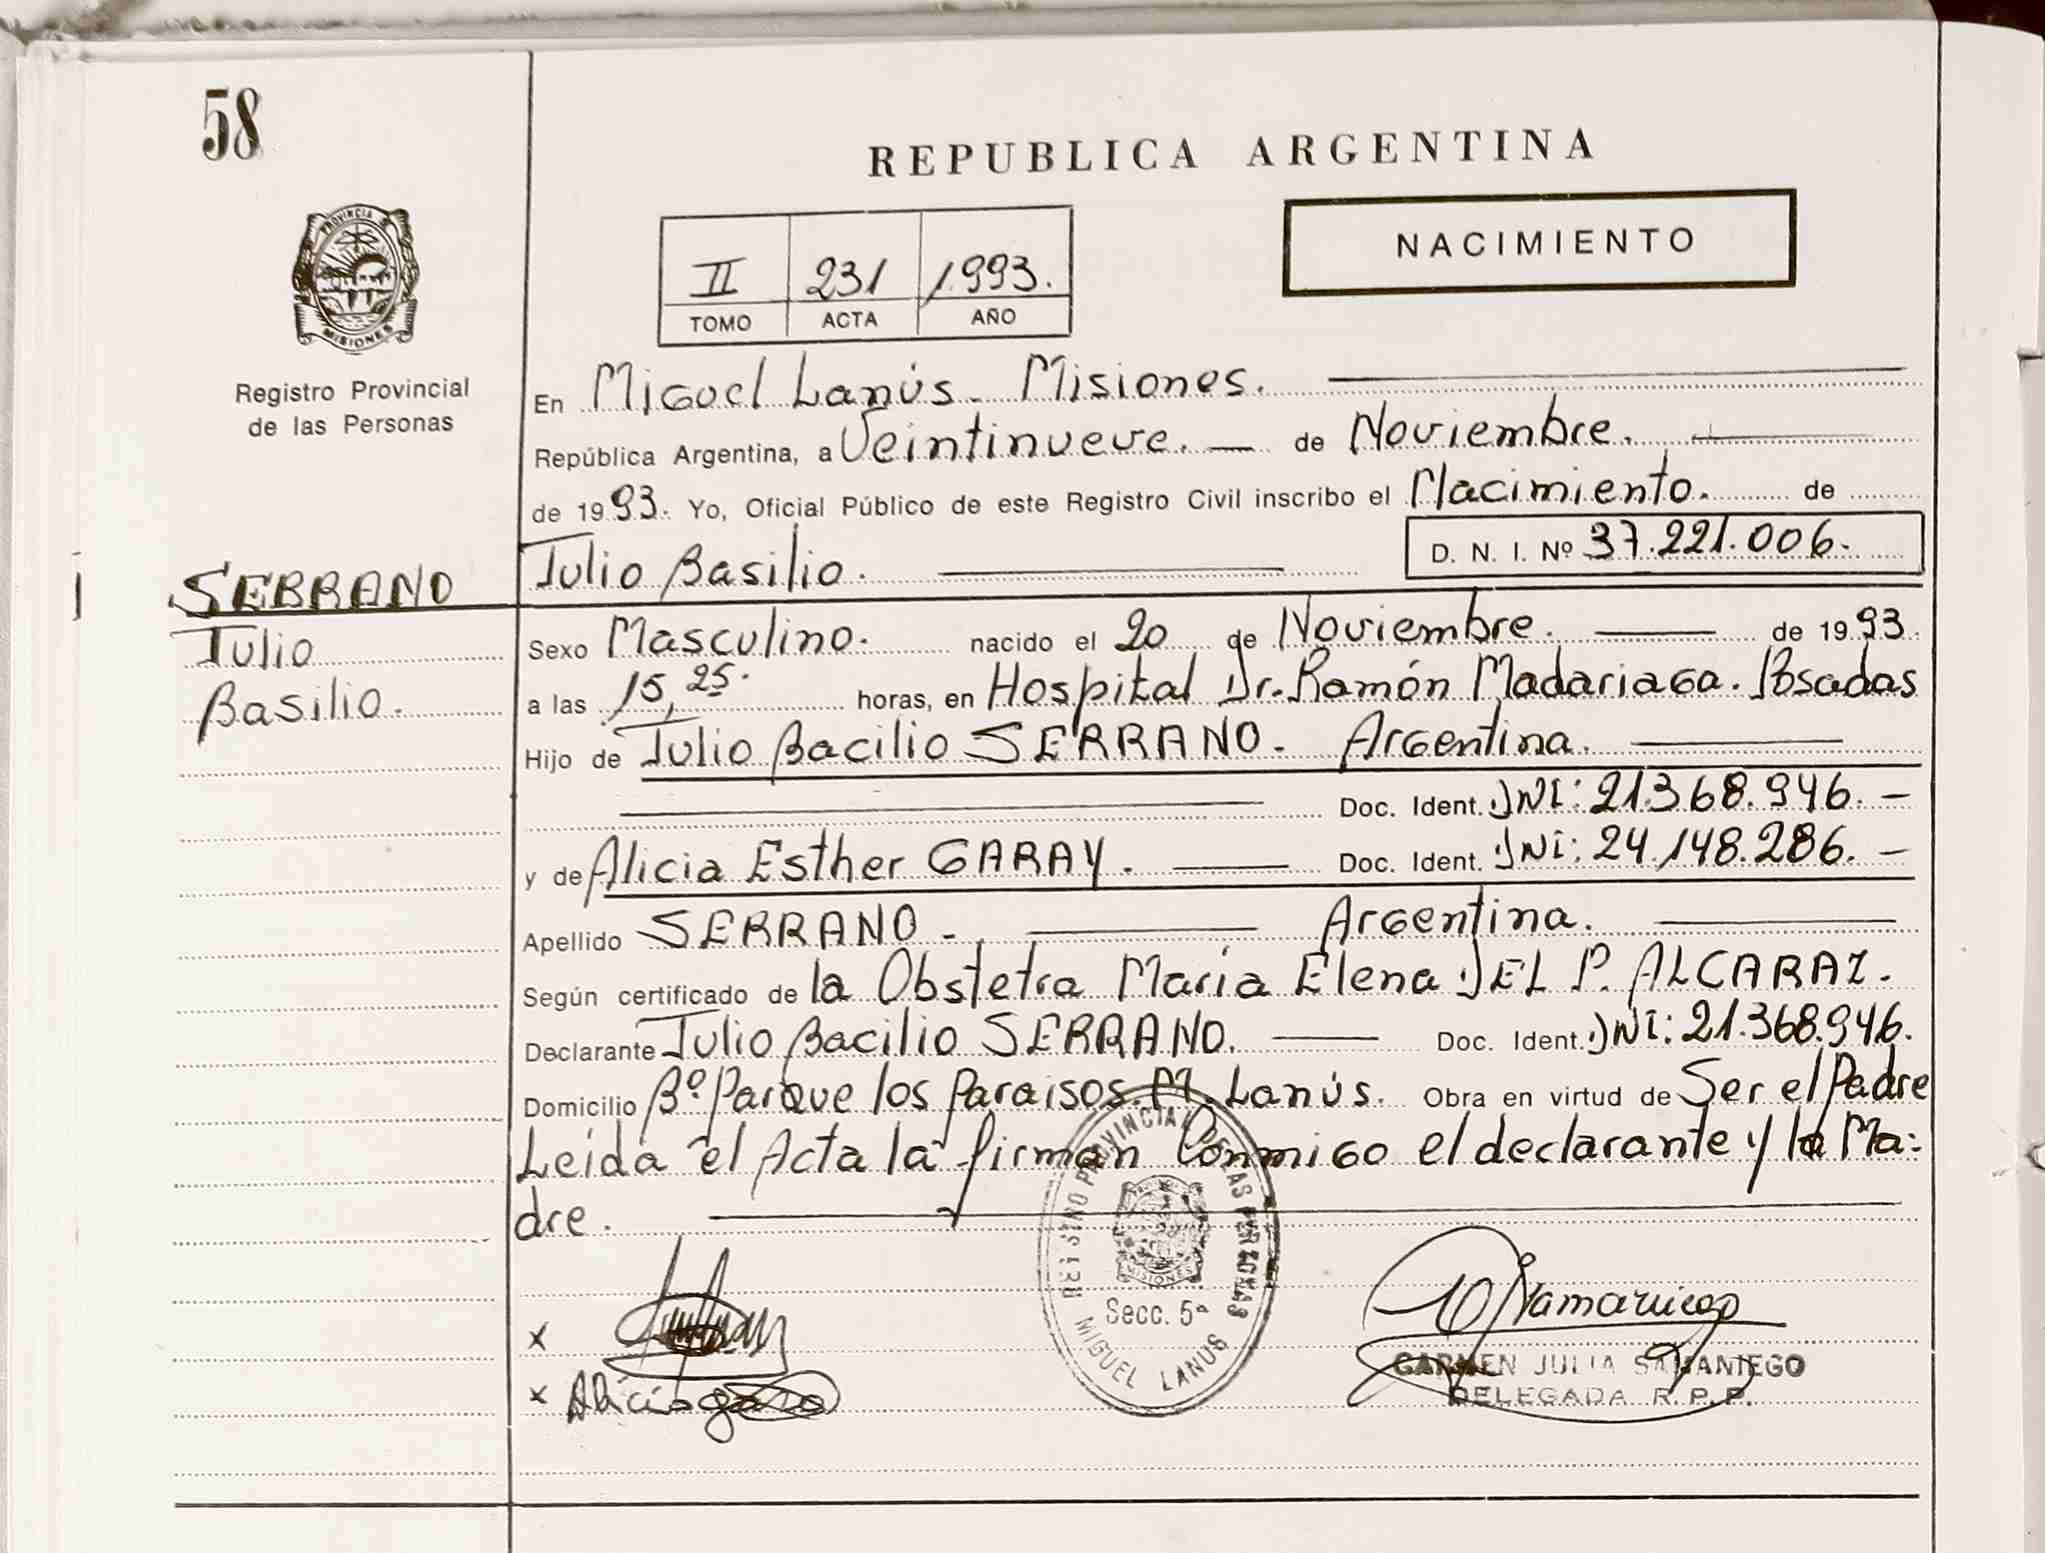 58
REPUBLICA ARGENTINA
NACIMIENTO
II 231 1993.
TOMO ACTA AÑO
PROVINCIA DE
MISIONES
Registro Provincial
de las Personas
En Miguel Lanús. Misiones.
República Argentina, a Veintinueve. — de Noviembre.
de 1993. Yo, Oficial Público de este Registro Civil inscribo el Nacimiento. de
Julio Basilio. D. N. I. Nº 37.221.006.
SERRANO
Julio
Basilio.
Sexo Masculino. nacido el 20 de Noviembre. de 1993.
a las 15,25. horas, en Hospital Dr. Ramón Madariaga. Posadas
Hijo de Julio Bacilio SERRANO. Argentina.
Doc. Ident. DNI: 21.368.946. —
y de Alicia Esther GARAY. Doc. Ident. DNI: 24.148.286. —
Apellido SERRANO. Argentina.
Según certificado de la Obstetra María Elena DEL P. ALCARAZ.
Declarante Julio Bacilio SERRANO. Doc. Ident. DNI: 21.368.946.
Domicilio Bº Parque los Paraisos. M. Lanús. Obra en virtud de Ser el Padre
Leida el Acta la firman Conmigo el declarante y la Ma-
dre.
REGISTRO PROVINCIAL DE LAS PERSONAS
MISIONES
Secc. 5ª
MIGUEL LANUS
x
x Alicia
CARMEN JULIA SAMANIEGO
DELEGADA R.P.P.